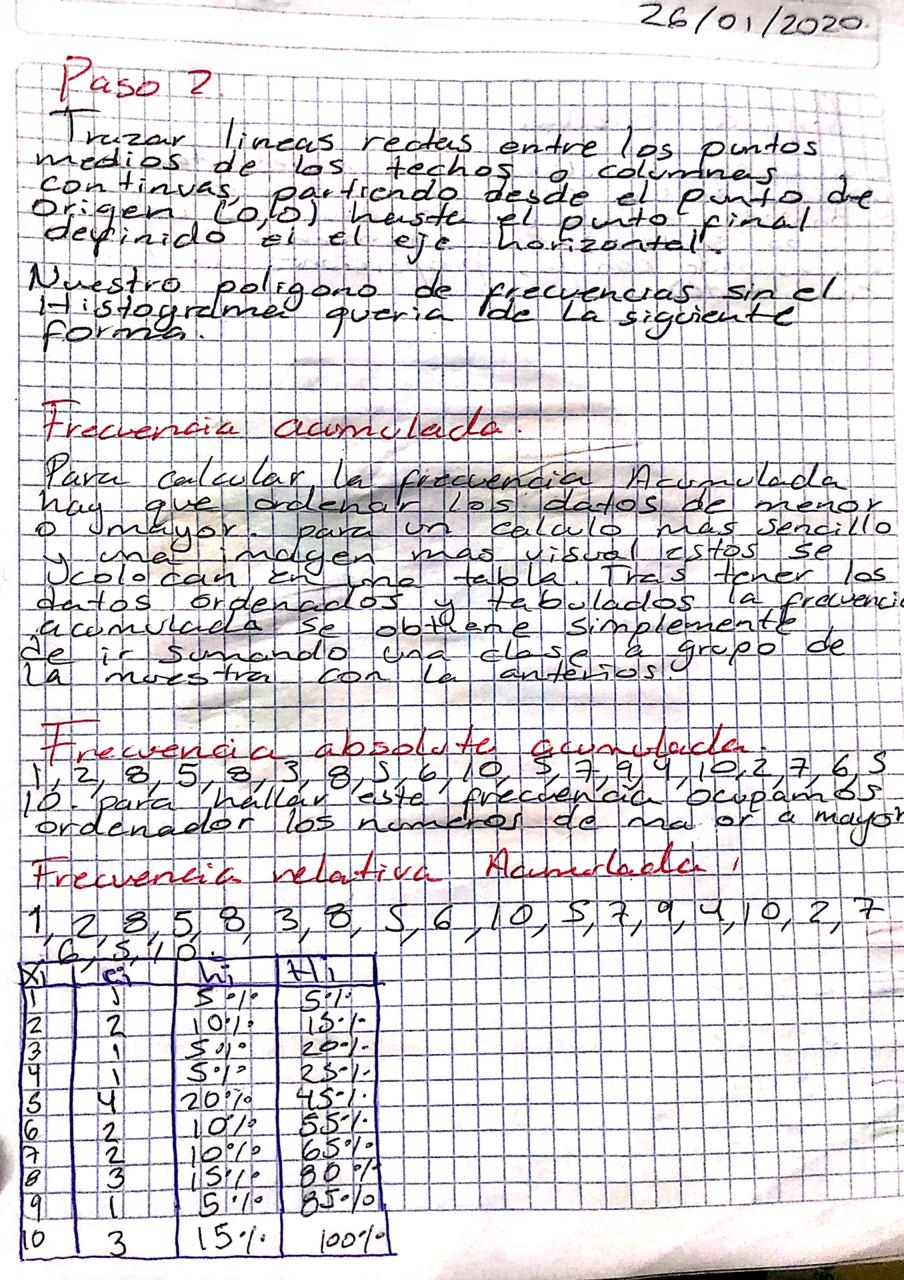 26/01/2020.
Paso 2.
Trazar lineas rectas entre los puntos
medios de los techos o columnas
continuas, partiendo desde el punto de
Origen (0,0) haste el punto final
definido ei el eje horizontal.
Nuestro poligono de frecuencias sin el
Histograma queria de La siguiente
forma.
Frecuencia acumulada.
Para calcular, la frecuencia Acumulada
hay que ordenar los datos de menor
o mayor. para un calculo mas sencillo
y una imagen mas visual Estos se
colocan en una tabla. Tras tener los
datos ordenados y tabulados la frecuencia
acumulada se obtiene simplemente
de ir sumando una clase a grupo de
La muestra con La anterios.
Frecuencia absolute acumulada.
1, 2, 8, 5, 8, 3, 8, 5, 6, 10, 5, 7, 9, 4, 10, 2, 7, 6, 5
10. para hallar este frecuencia ocupamos
ordenador los numeros de ma or a mayor
Frecuencia relativa Acumulada
1, 2, 8, 5, 8, 3, 8, 5, 6, 10, 5, 7, 9, 4, 10, 2, 7
6, 5, 10.
Xi hi Hi
1 1 5% 5%
2 2 10% 15%
3 1 5% 20%
4 1 5% 25%
5 4 20% 45%
6 2 10% 55%
7 2 10% 65%
8 3 15% 80%
9 1 5% 85%
10 3 15% 100%